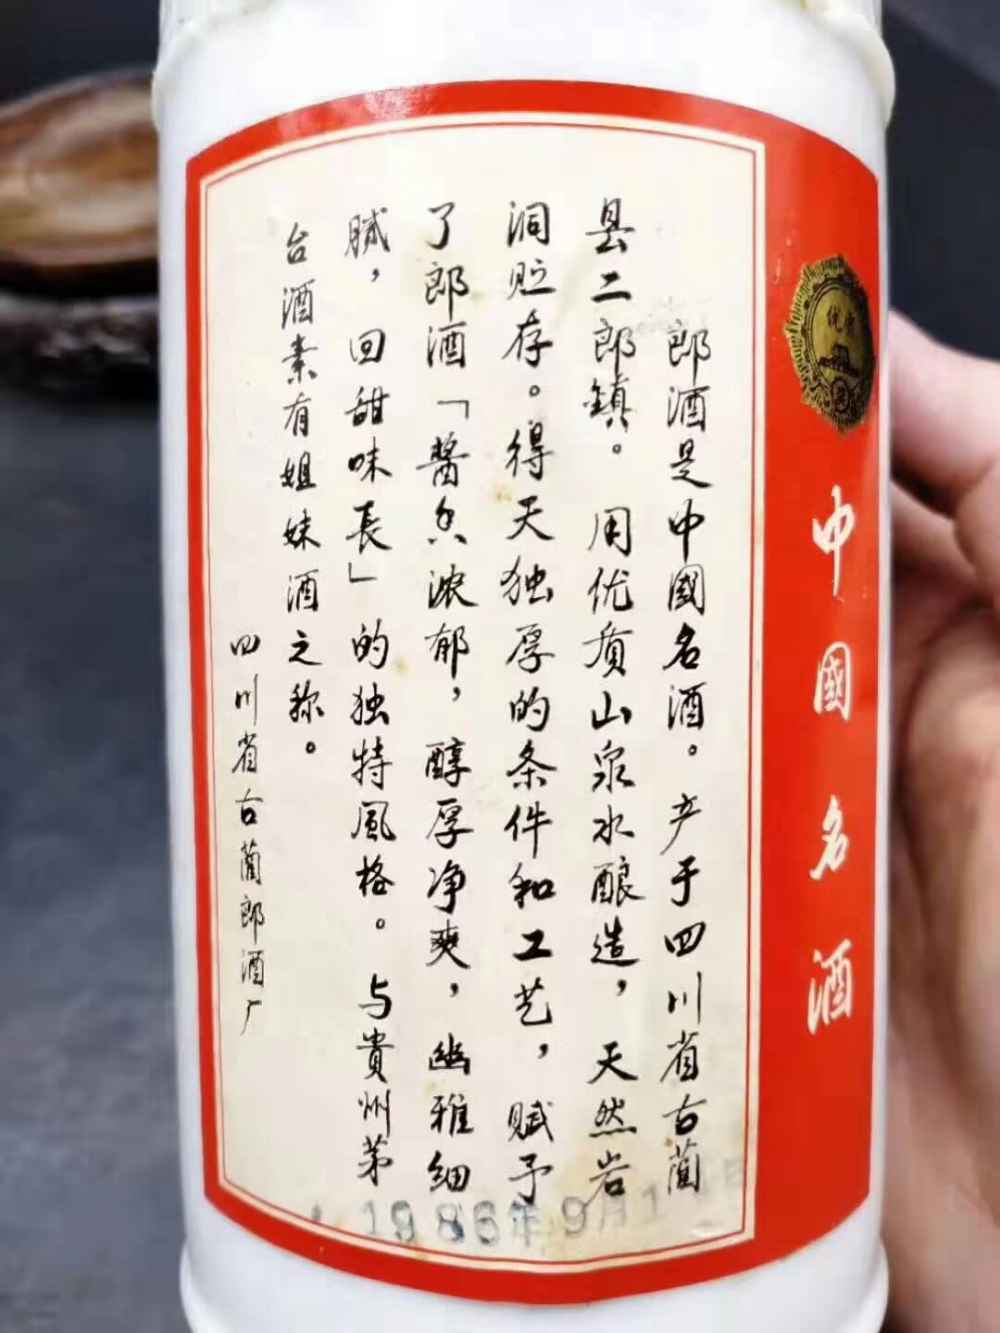 郎酒是中國名酒。产于四川省古藺
县二郎鎮。用优质山泉水酿造，天然岩
洞贮存。得天独厚的条件和工艺，赋予
了郎酒「酱香浓郁，醇厚净爽，幽雅细
腻，回甜味長」的独特風格。与貴州茅
台酒素有姐妹酒之称。
四川省古藺郎酒厂
中國名酒
1986年9月1